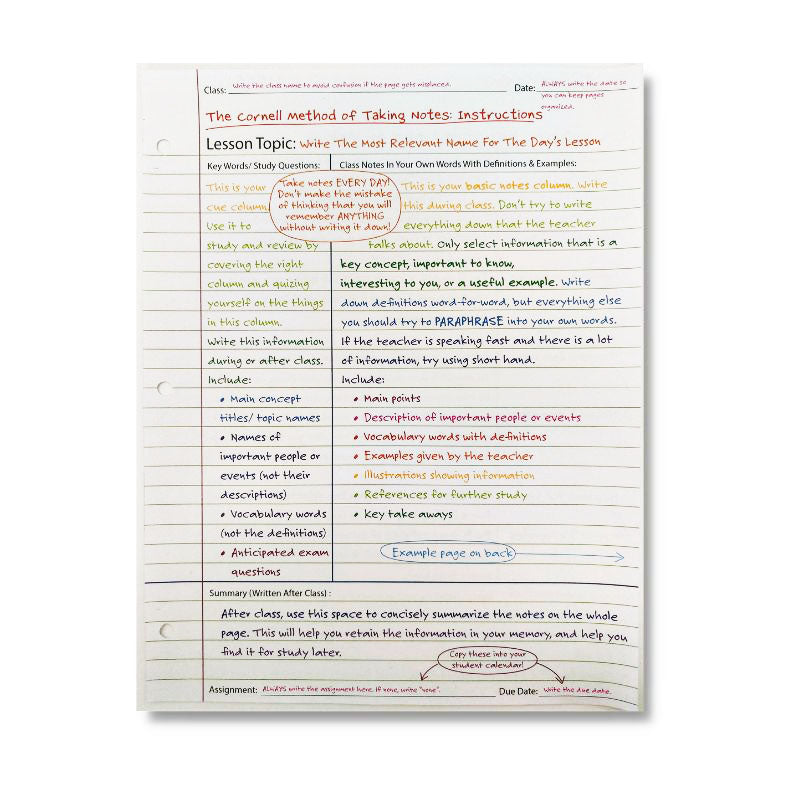 Class: Write the class name to avoid confusion if the page gets misplaced.
Date: ALWAYS write the date so
you can keep pages
organized.
The Cornell Method of Taking Notes: Instructions
Lesson Topic: Write The Most Relevant Name For The Day's Lesson
Key Words/ Study Questions:
This is your
cue column
Use it to
study and review by
covering the right
column and quizing
yourself on the things
in this column.
Write this information
during or after class.
Include:
• Main concept
titles/ topic names
• Names of
important people or
events (not their
descriptions)
• Vocabulary words
(not the definitions)
• Anticipated exam
questions
Take notes EVERY DAY!
Don't make the mistake
of thinking that you will
remember ANYTHING
without writing it down!
Class Notes In Your Own Words With Definitions & Examples:
This is your basic notes column. Write
this during class. Don't try to write
everything down that the teacher
talks about. Only select information that is a
key concept, important to know,
interesting to you, or a useful example. Write
down definitions word-for-word, but everything else
you should try to PARAPHRASE into your own words.
If the teacher is speaking fast and there is a lot
of information, try using short hand.
Include:
• Main points
• Description of important people or events
• Vocabulary words with definitions
• Examples given by the teacher
• Illustrations showing information
• References for further study
• Key take aways
Example page on back
Summary (Written After Class) :
After class, use this space to concisely summarize the notes on the whole
page. This will help you retain the information in your memory, and help you
find it for study later.
Copy these into your
student calendar!
Assignment: ALWAYS write the assignment here. If none, write "none".
Due Date: Write the due date.